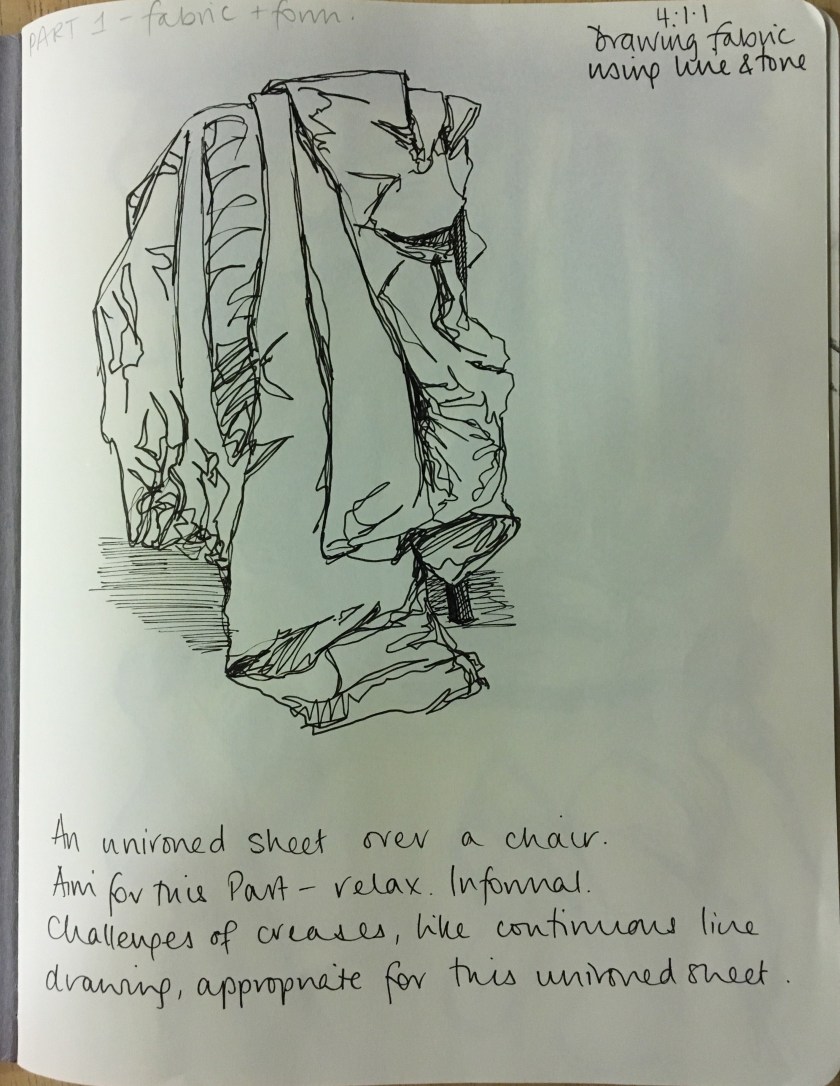 PART 1 - fabric + form.
4.1.1
Drawing fabric
using line & tone
An unironed sheet over a chair.
Aim for this Part - relax. Informal.
Challenges of creases, like continuous line
drawing, appropriate for this unironed sheet.